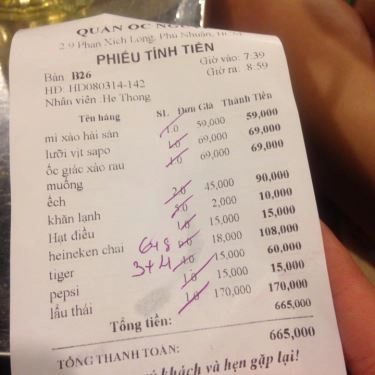 QUÁN ỐC
2 9 Phan Xích Long, Phú Nhuận,
PHIẾU TÍNH TIỀN
Bàn B26 Giờ vào: 7:39
HD: HD080314-142 Giờ ra: 8:59
Nhân viên :He Thong
Tên hàng SL Đơn Giá Thành Tiền
mì xào hải sản 1.0 59,000 59,000
lưỡi vịt sapo 1.0 69,000 69,000
ốc giác xào rau 1.0 69,000 69,000
muống
ếch 2.0 45,000 90,000
khăn lạnh 5.0 2,000 10,000
Hạt điều 1.0 15,000 15,000
heineken chai 6 18,000 108,000
tiger 3+4 15,000 60,000
pepsi 1.0 15,000 15,000
lẩu thái 1.0 170,000 170,000
Tổng tiền: 665,000
TỔNG THANH TOÁN: 665,000
khách và hẹn gặp lại!